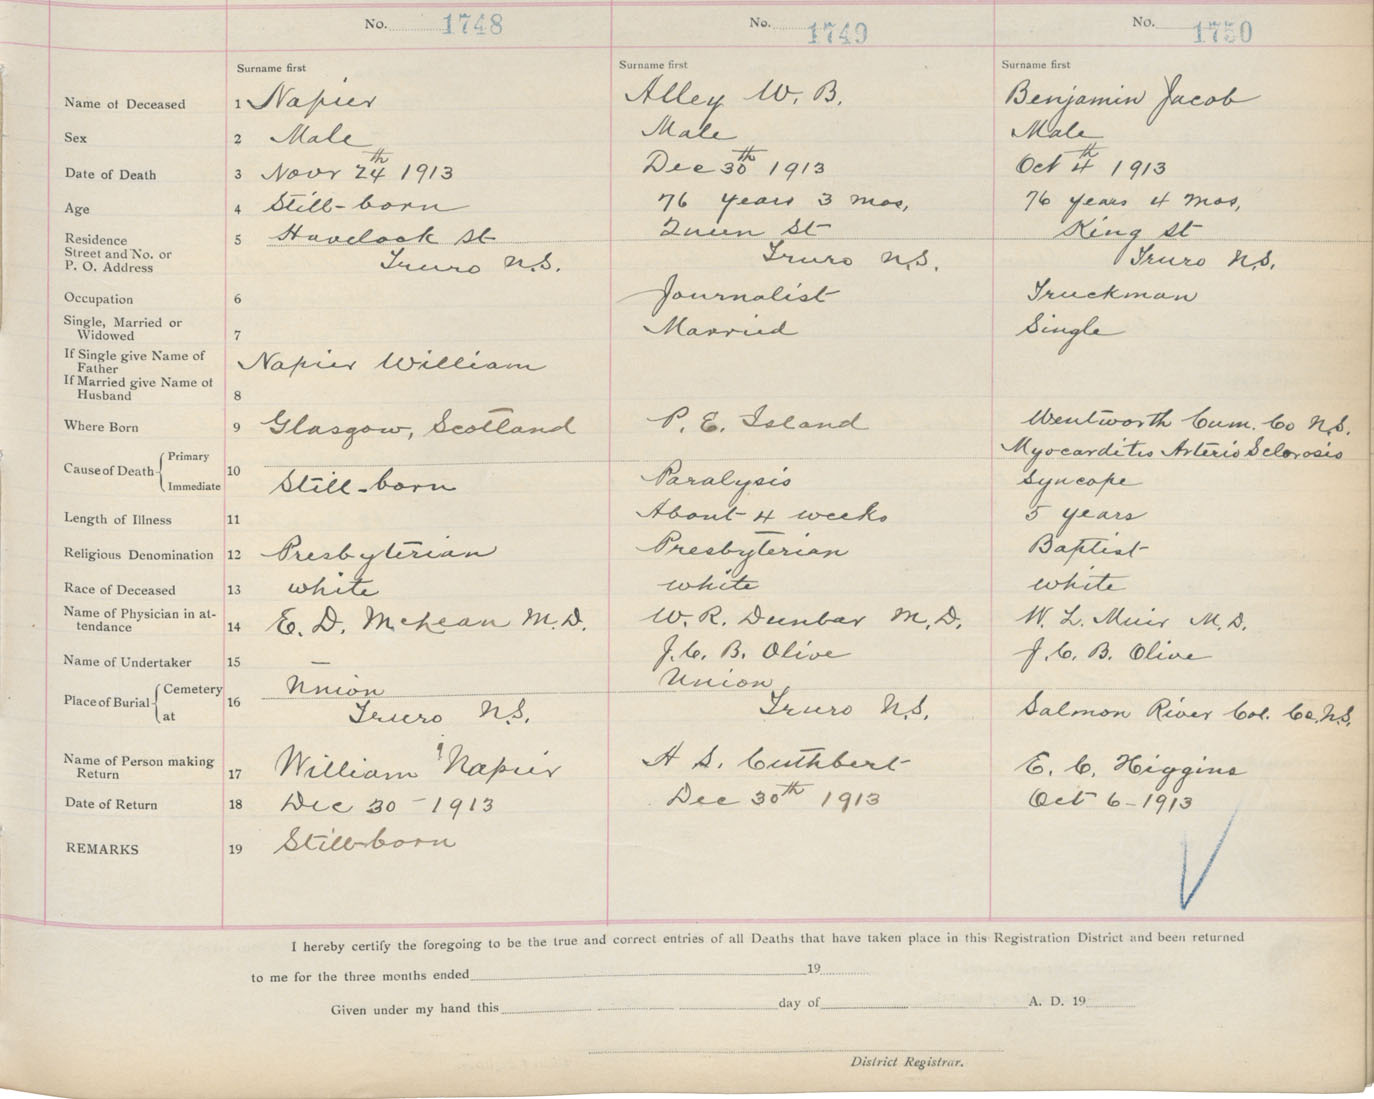 No. 1748 No. 1749 No. 1750
Surname first Surname first Surname first
Name of Deceased 1 Napier Alley W. B. Benjamin Jacob
Sex 2 Male Male Male
Date of Death 3 Novr 24th 1913 Dec 30th 1913 Oct 4th 1913
Age 4 Still-born 76 years 3 mos, 76 years 4 mos,
Residence 5 Havelock St Queen St King St
Street and No. or
P. O. Address Truro N.S. Truro N.S. Truro N.S.
Occupation 6 Journalist Truckman
Single, Married or
Widowed 7 Married Single
If Single give Name of
Father Napier William
If Married give Name of
Husband 8
Where Born 9 Glasgow, Scotland P. E. Island Wentworth Cum. Co N.S.
Cause of Death Primary 10 Myocarditis Arterio Sclorosis
Immediate Still-born Paralysis Syncope
Length of Illness 11 About 4 weeks 5 years
Religious Denomination 12 Presbyterian Presbyterian Baptist
Race of Deceased 13 white white white
Name of Physician in at-
tendance 14 E. D. McLean M.D. W. R. Dunbar M.D. W. L. Muir M.D.
Name of Undertaker 15 — J. C. B. Olive J. C. B. Olive
Place of Burial Cemetery 16 Union Union
at Truro N.S. Truro N.S. Salmon River Col. Co. N.S.
Name of Person making
Return 17 William Napier H S. Cuthbert E. C. Higgins
Date of Return 18 Dec 30 - 1913 Dec 30th 1913 Oct 6 - 1913
REMARKS 19 Still-born
I hereby certify the foregoing to be the true and correct entries of all Deaths that have taken place in this Registration District and been returned
to me for the three months ended 19
Given under my hand this day of A. D. 19
District Registrar.